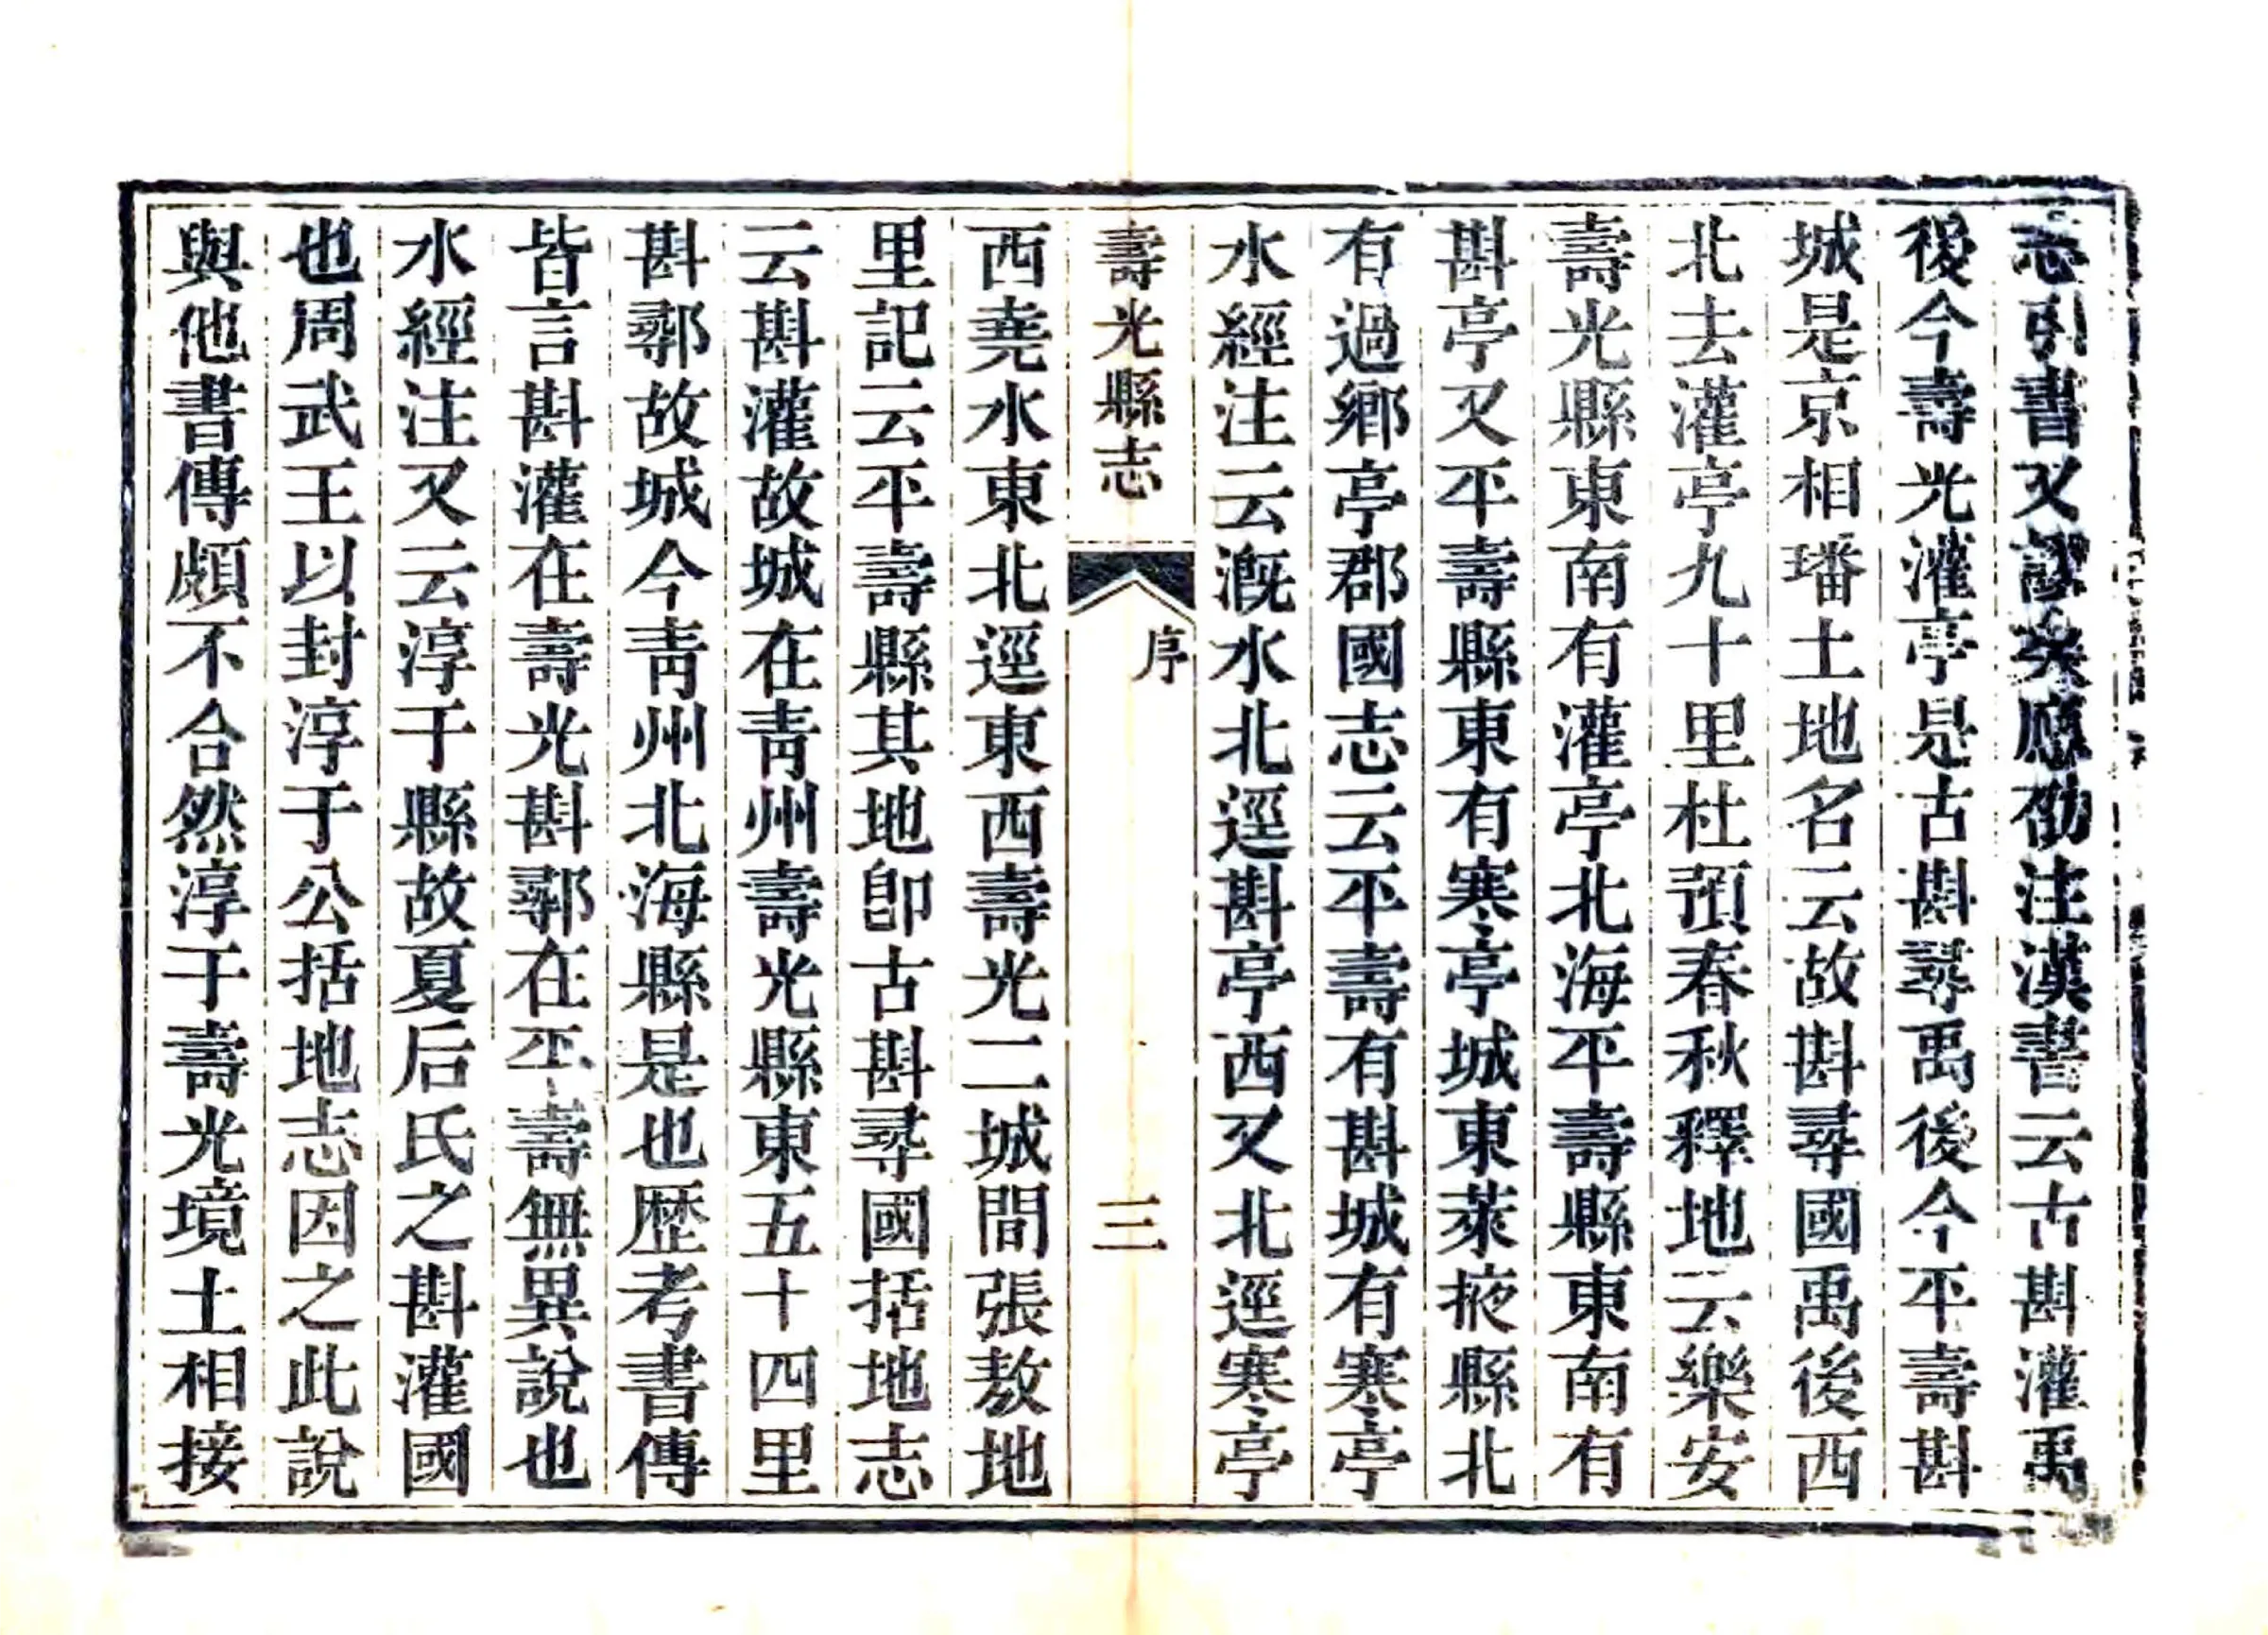 志引書又謬矣應劭注漢書云古斟灌禹
後今壽光灌亭是古斟尋禹後今平壽斟
城是京相璠土地名云故斟尋國禹後西
北去灌亭九十里杜預春秋釋地云樂安
壽光縣東南有灌亭北海平壽縣東南有
斟亭又平壽縣東有寒亭城東萊掖縣北
有過鄉亭郡國志云平壽有斟城有寒亭
水經注云溉水北逕斟亭西又北逕寒亭
壽光縣志
序
三
西堯水東北逕東西壽光二城間張敖地
里記云平壽縣其地卽古斟尋國括地志
云斟灌故城在靑州壽光縣東五十四里
斟鄩故城今靑州北海縣是也歴考書傳
皆言斟灌在壽光斟鄩在平壽無異說也
水經注又云淳于縣故夏后氏之斟灌國
也周武王以封淳于公括地志因之此說
與他書傳頗不合然淳于壽光境土相接